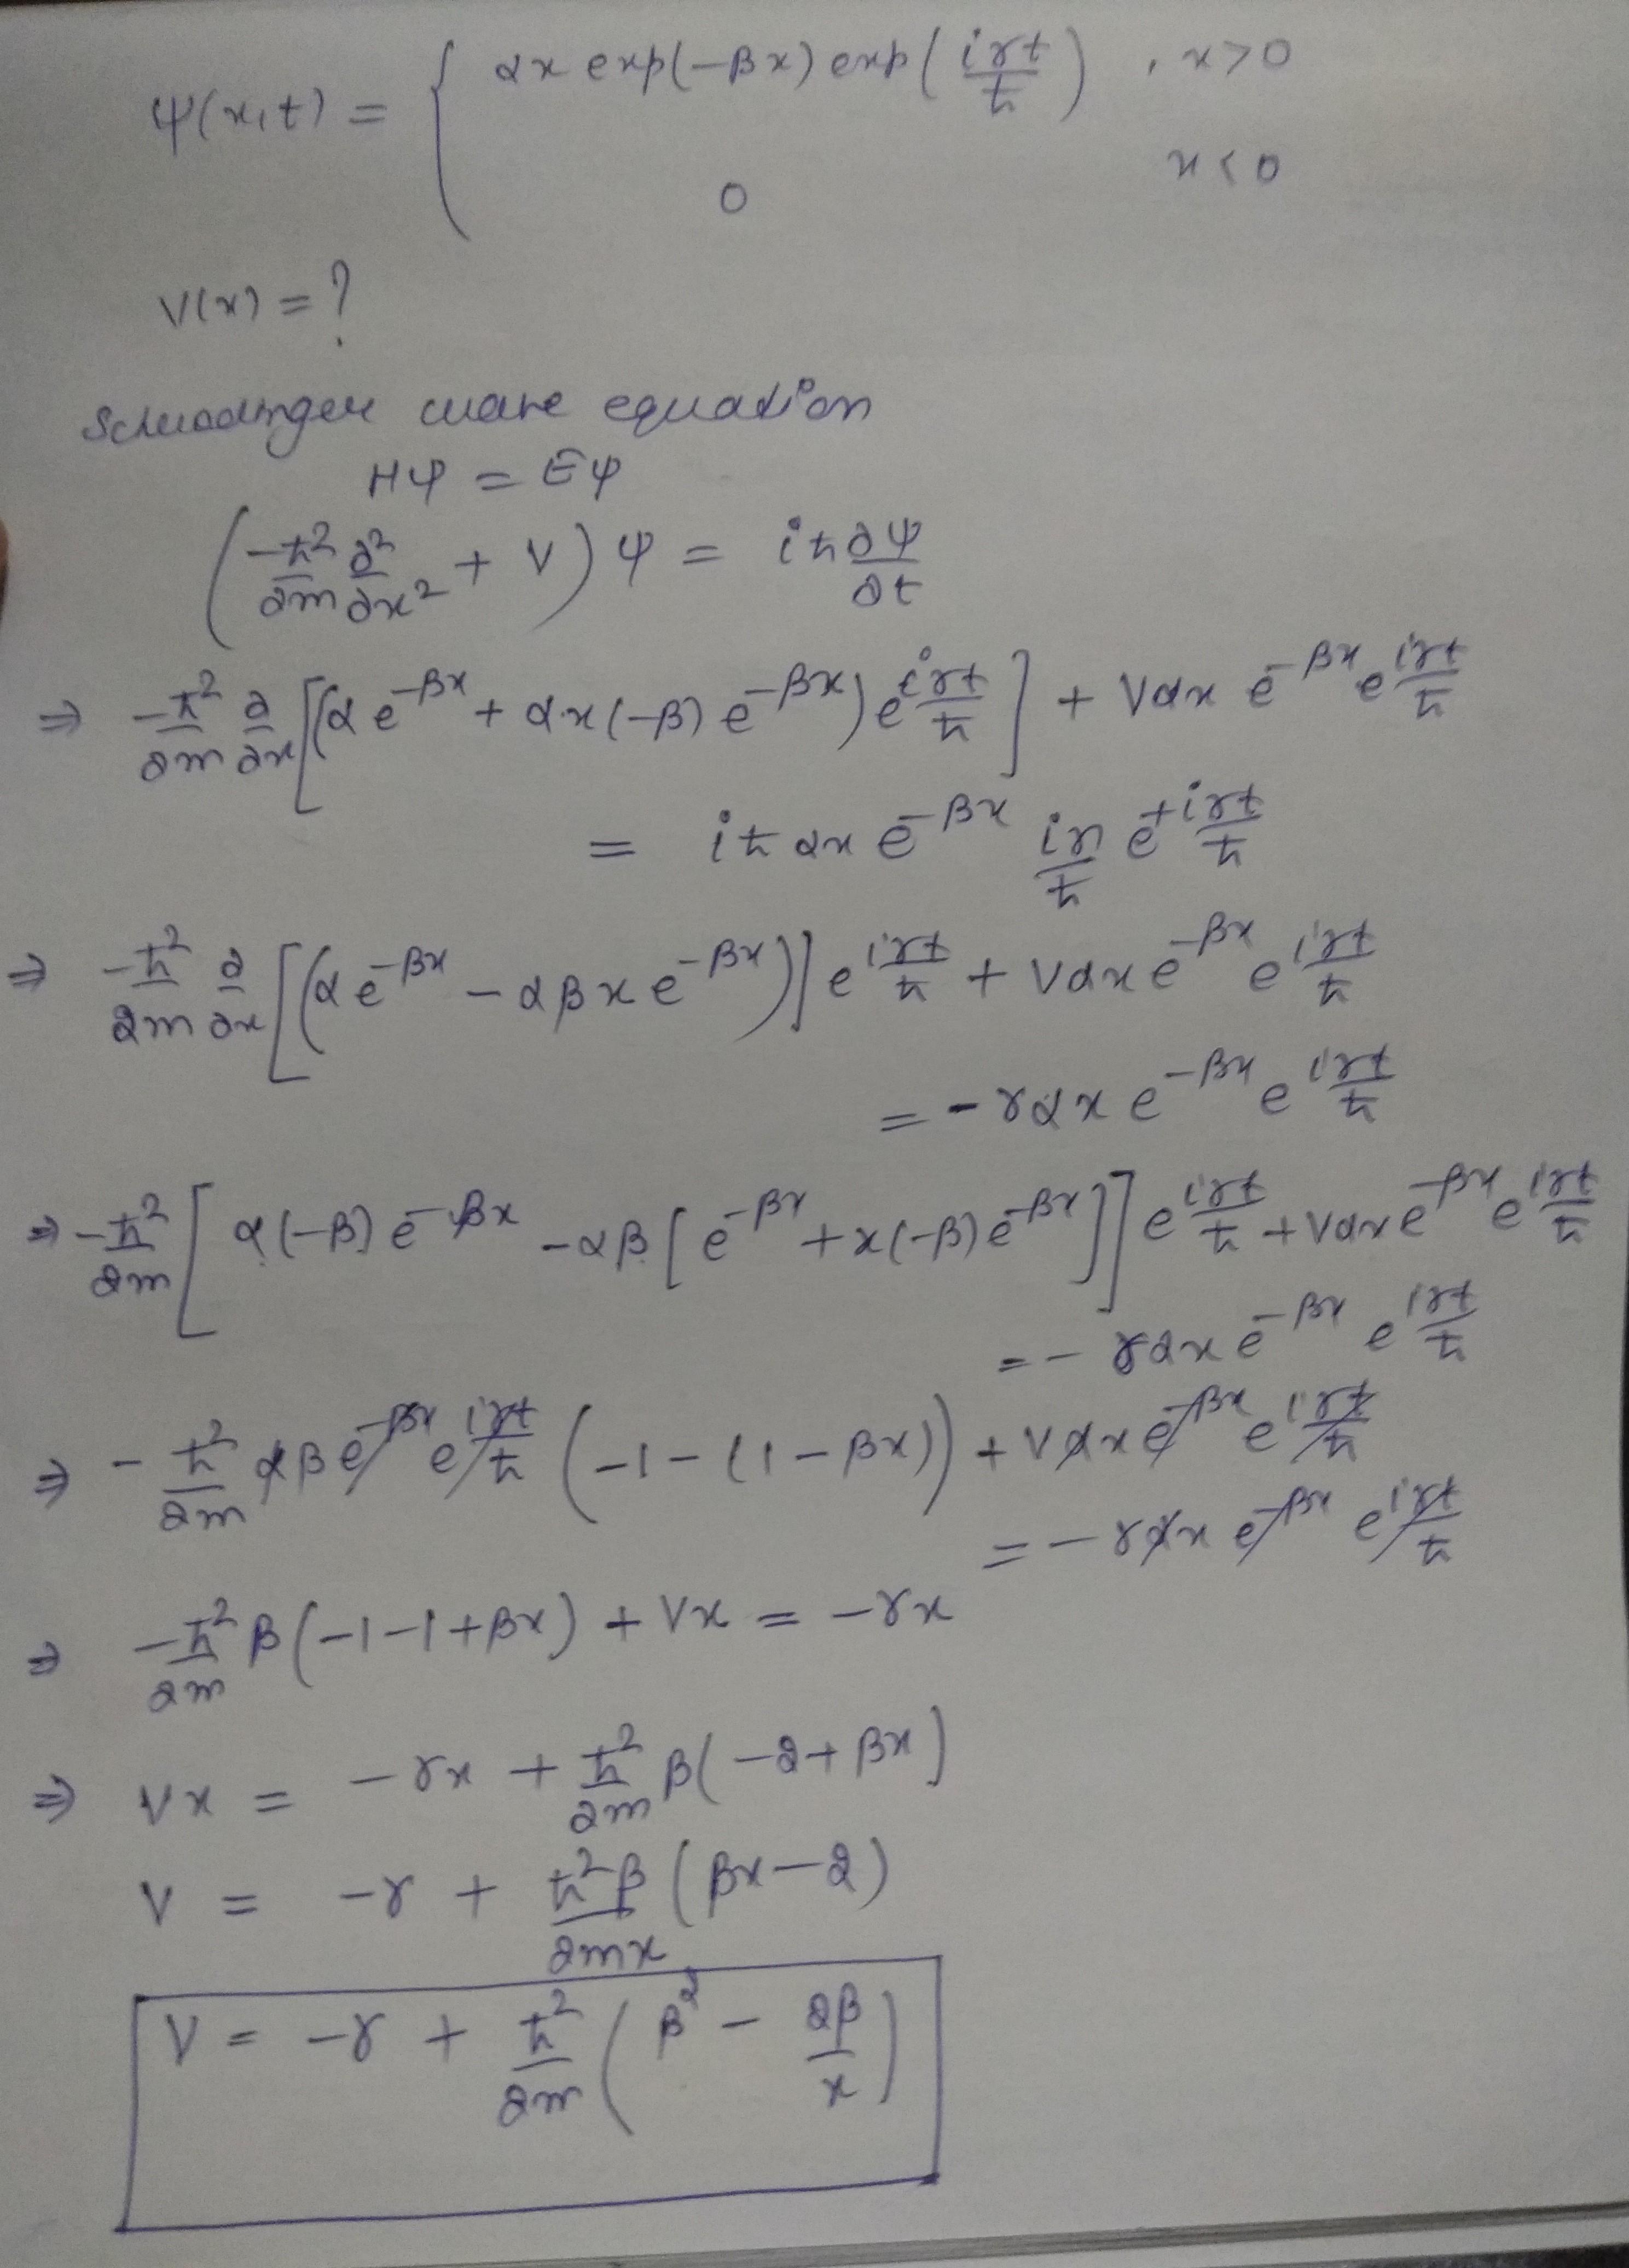 ψ(x,t) = { αx exp(-βx) exp(iγt/ħ) , x>0
0 x<0
V(x) = ?
Schrodinger wave equation
Hψ = Eψ
(-ħ²/2m ∂²/∂x² + V) ψ = iħ ∂ψ/∂t
⇒ -ħ²/2m ∂/∂x [(αe^{-βx} + α.x(-β) e^{-βx}) e^{iγt/ħ}] + Vαx e^{-βx} e^{iγt/ħ}
= iħ αx e^{-βx} iγ/ħ e^{+iγt/ħ}
⇒ -ħ²/2m ∂/∂x [(αe^{-βx} - αβx e^{-βx})] e^{iγt/ħ} + Vαx e^{-βx} e^{iγt/ħ}
= -γαx e^{-βx} e^{iγt/ħ}
⇒ -ħ²/2m [α(-β) e^{-βx} - αβ[e^{-βx} + x(-β) e^{-βx}]] e^{iγt/ħ} + Vαx e^{-βx} e^{iγt/ħ}
= -γαx e^{-βx} e^{iγt/ħ}
⇒ -ħ²/2m αβ e^{-βx} e^{iγt/ħ} (-1-(1-βx)) + Vαx e^{-βx} e^{iγt/ħ}
= -γαx e^{-βx} e^{iγt/ħ}
⇒ -ħ²/2m β(-1-1+βx) + Vx = -γx
⇒ Vx = -γx + ħ²/2m β(-2+βx)
V = -γ + ħ²β/2mx (βx-2)
V = -γ + ħ²/2m (β² - 2β/x)